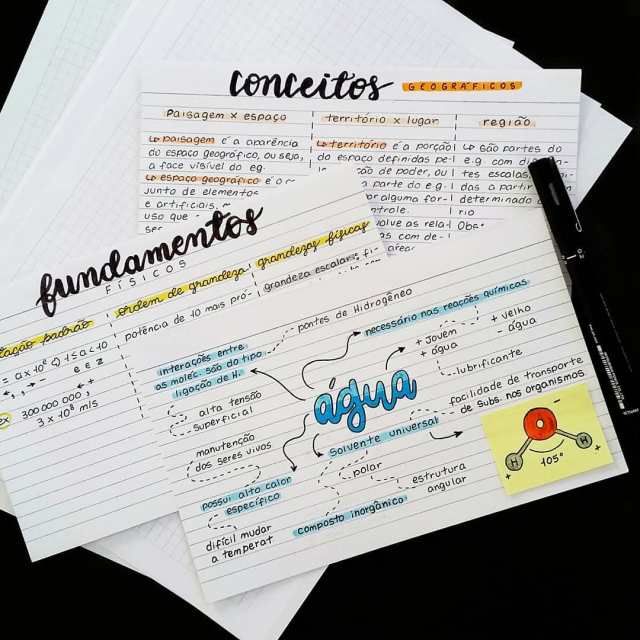 conceitos GEOGRÁFICOS
paisagem x espaço
↳ paisagem é a aparência
do espaço geográfico, ou seja,
a face visível do eg.
↳ espaço geográfico é o
junto de elementos
e artificiais,
uso que
território x lugar
↳ território é a porção
do espaço definidas pe-
de poder, ou
parte do e.g.
por alguma for-
controle.
volve as rela-
as com de-
região
↳ são partes do
e.g. com
tes escalas
das a partir
determinado
rio
Obs
fundamentos
FÍSICOS
padrão
= a x 10ⁿ ⇔ 1 ≤ a < 10
e ∈ Z
ex 300 000 000,
3 x 10⁸ m/s
ordem de grandeza
potência de 10 mais pró-
grandezas físicas
grandeza escalar: fi-
água
pontes de Hidrogêneo
interações entre
as moléc. são do tipo
ligação de H.
alta tensão
superficial
manutenção
dos seres vivos
necessário nas reações químicas
+ jovem
+ água
+ velho
- água
lubrificante
facilidade de transporte
de subs. nos organismos
Solvente universal
polar
estrutura
angular
possui alto calor
específico
difícil mudar
a temperat
composto inorgânico
O
H H
105°
+ - +